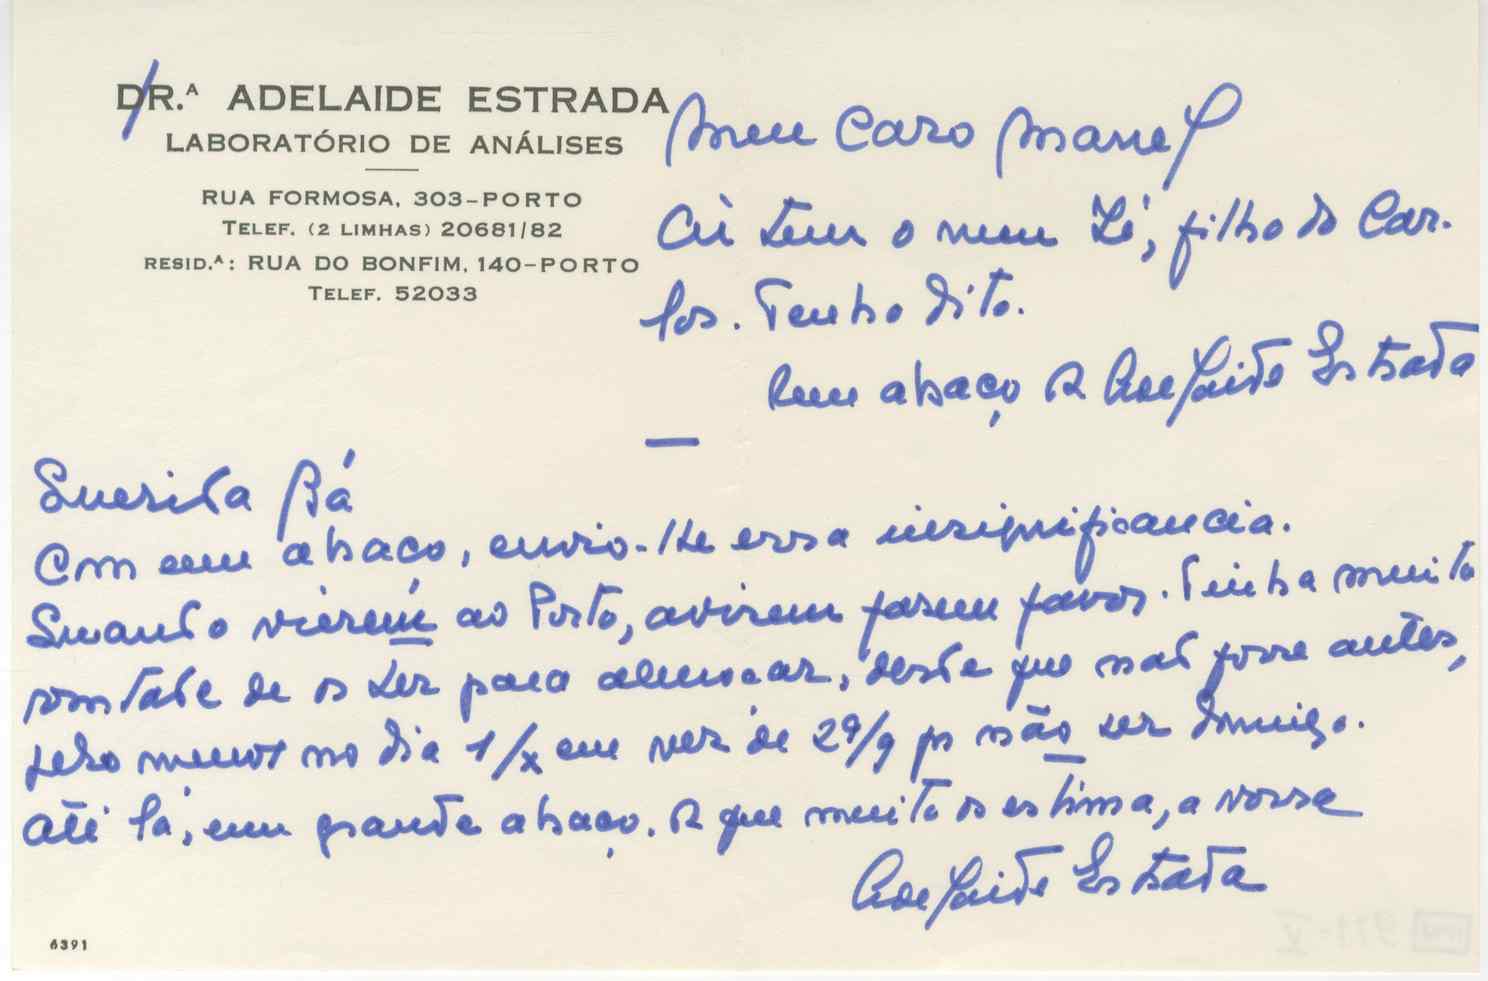 DR.ª ADELAIDE ESTRADA
LABORATÓRIO DE ANÁLISES
RUA FORMOSA, 303-PORTO
TELEF. (2 LIMHAS) 20681/82
RESID.ª: RUA DO BONFIM, 140-PORTO
TELEF. 52033
Meu Caro Manel
Cii tem o meu Zé, filho do Car-
los. Tenho dito.
Um abraço da Adelaide Estrada
Querida Bá
Com um abraço, envio-lhe essa insignificancia.
Quando vierem ao Porto, avisem façam favor. Tinha muita
vontade de os ter para almoçar, desde que não fosse antes,
pelo menos no dia 1/x em vez de 29/9 ps não ser domingo.
Até lá, um grande abraço. da que muito os estima, a vossa
Adelaide Estrada
6391